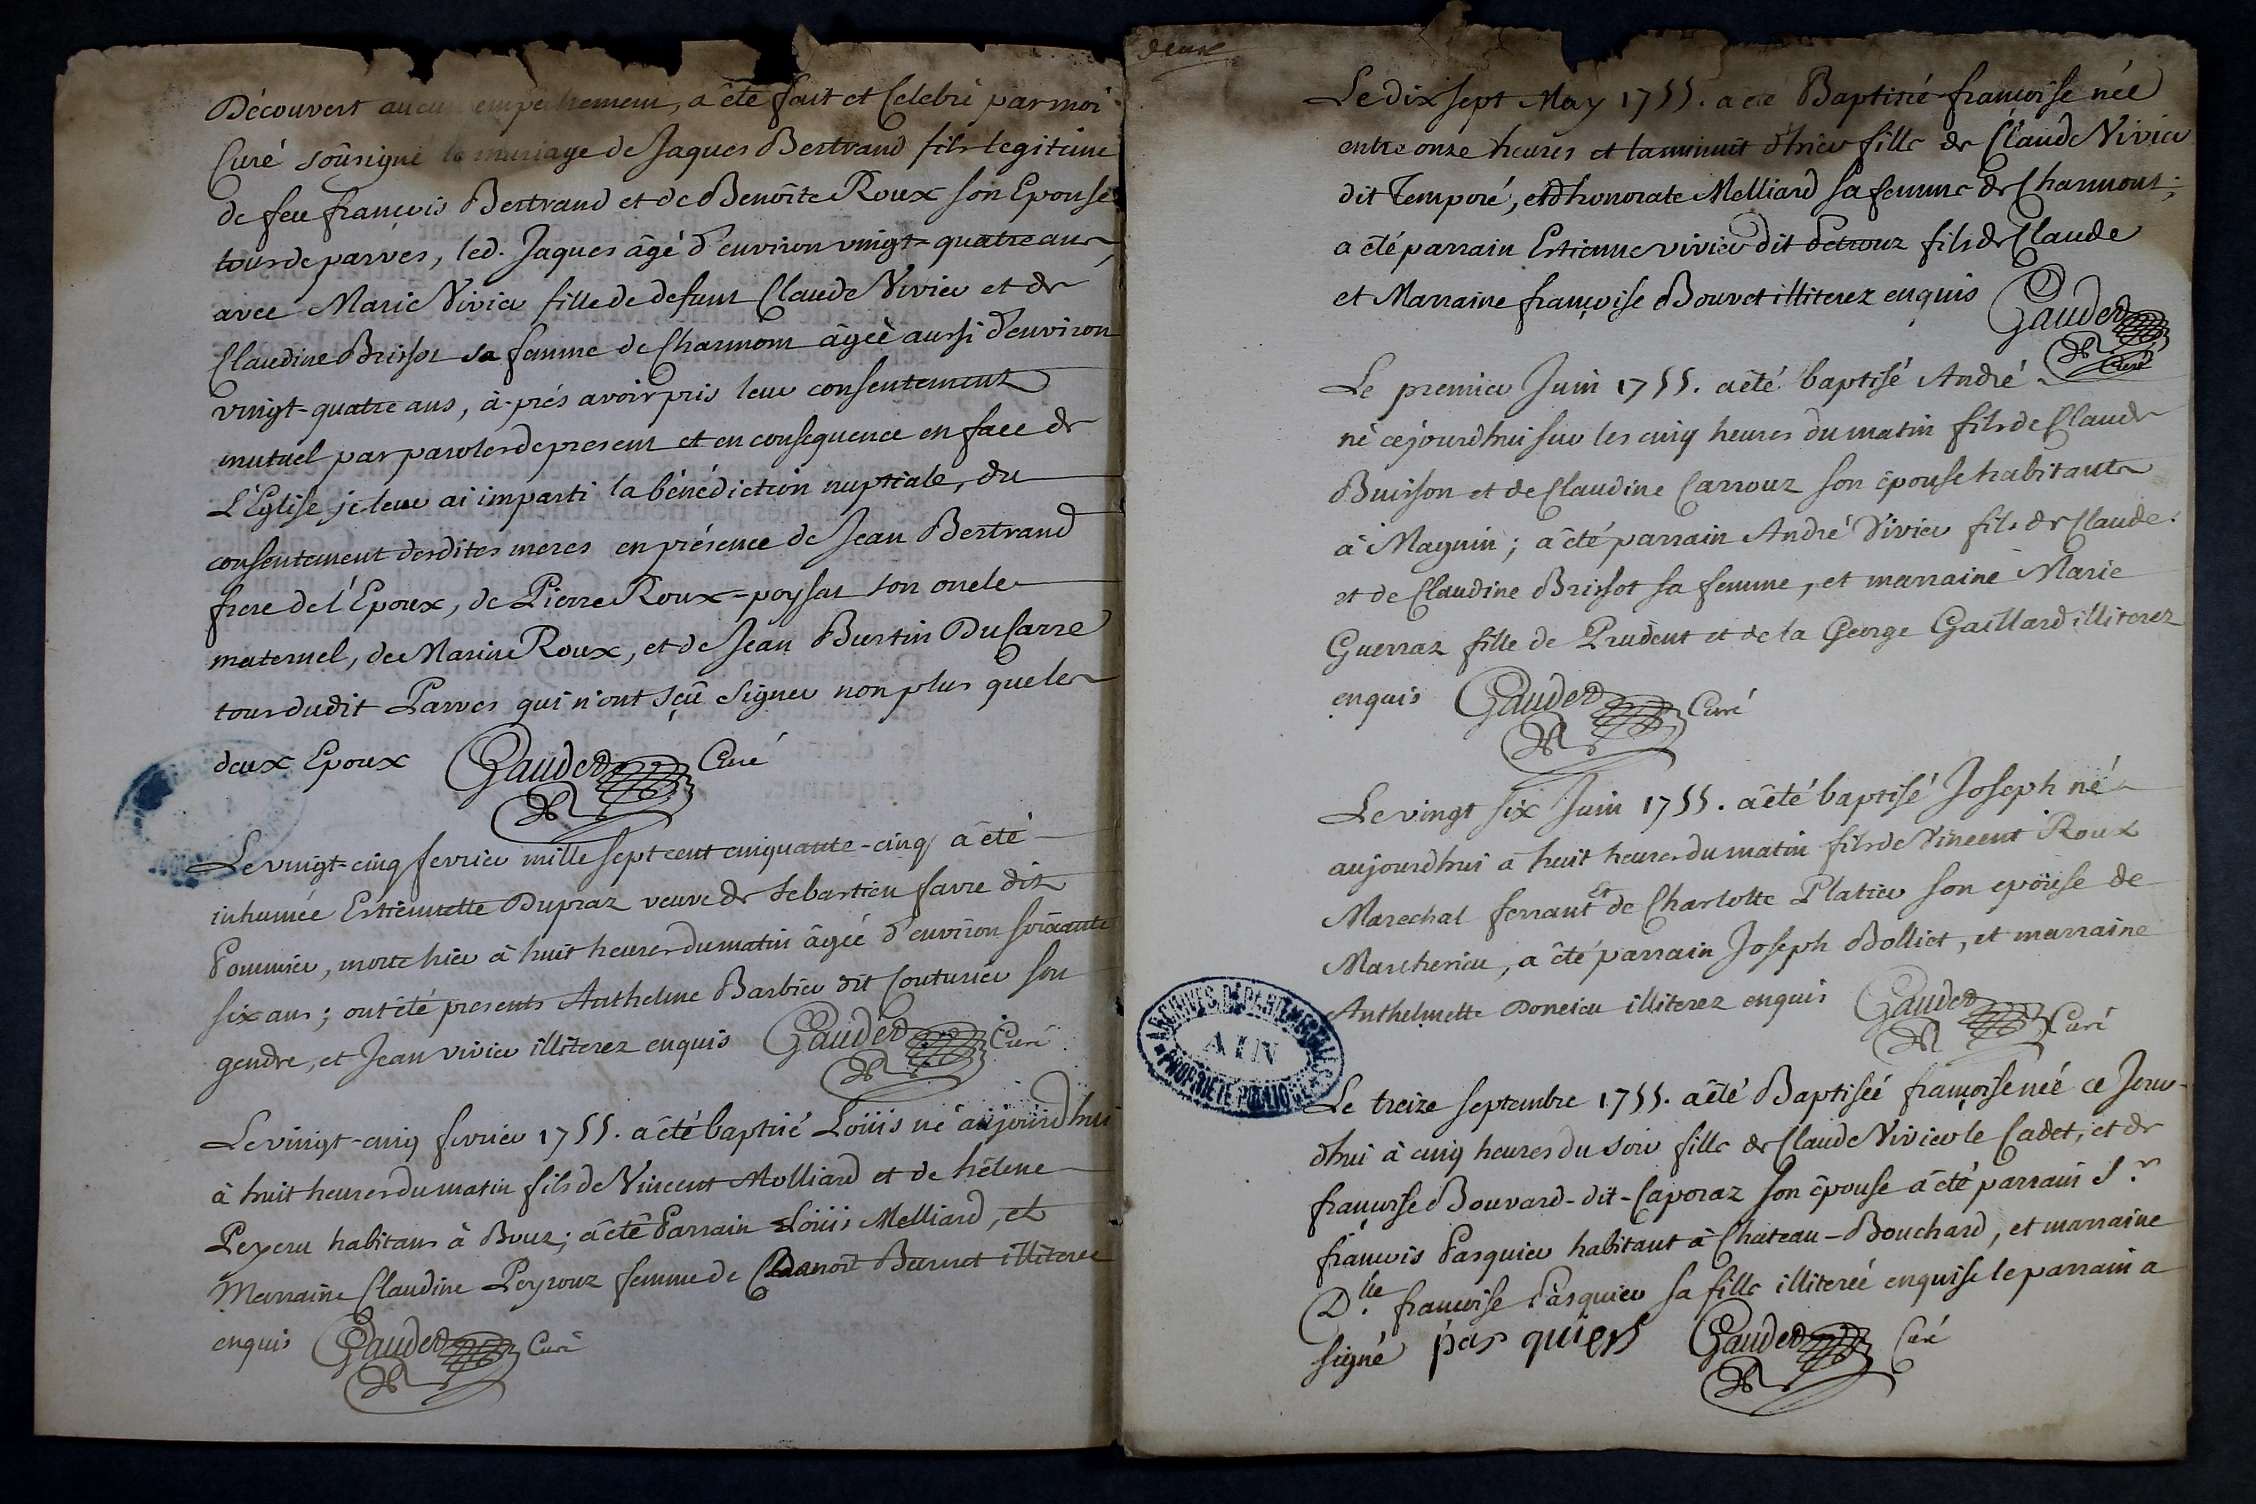 Découvert aucun empechement, a été fait et Celebré par moi
Curé soûsigné le mariage de Jaques Bertrand fils legitime
de feu françois Bertrand et de Benoîte Roux son Epouse
tous de parves, led. Jaques âgé d'environ vingt-quatre ans
avec Marie Vivier fille de defunt Claude Vivier et de
Claudine Brissot sa femme de Charmont âgeé aussi d'environ
vingt-quatre ans, à-prés avoir pris leur consentement
mutuel par paroles de present et en consequence en face de
L'Eglise je leur ai imparti la bénédiction nuptiale, du
consentement desdites meres en présence de Jean Bertrand
frere de l'Epoux, de Pierre Roux-poysat son oncle
maternel, de Marin Roux, et de Jean Burtin Du Carre
tous dudit Parves qui n'ont sçû signer non plus que les
deux Epoux Gaudet Curé
Le vingt-cinq fevrier mille sept cent cinquante-cinq a été
inhumée Estiennette Dupraz veuve de Sebastien favre dit
Pommier, morte hier à huit heures du matin âgée d'environ soixante
six ans; ont été presents Anthelme Barbier dit Couturier son
gendre, et Jean vivier illiterez enquis Gaudet Curé
Le vingt-cinq fevrier 1755. a été baptisé Loüis né aujourdhui
à huit heures du matin fils de Vincent Molliard et de hélene
Peyeru habitans à Bouz; a été Parrain Loüis Melliard, et
Marraine Claudine Peyrouz femme de Benoit Burnet illiterez
enquis Gaudet Curé
deuxe
Le dix sept May 1755. a été Baptisée françoise née
entre onze heures et la minuit d'hier fille de Claude Vivier
dit Temporé, et d'honorate Melliard sa femme de Charmont;
a été parrain Estienne vivier dit Detrouz fils de Claude
et Marraine françoise Bouvet illiterez enquis Gaudet
Curé
Le premier Juin 1755. a été baptisé André
né cejourdhui sur les cinq heures du matin fils de Claude
Buisson et de Claudine Carrouz son épouse habitants
à Magnin; a été parrain André Vivier fils de Claude
et de Claudine Brissot sa femme, et marraine Marie
Guerraz fille de Prudent et de la George Gaillard illiterez
enquis Gaudet Curé
Le vingt six Juin 1755. a été baptisé Joseph né
aujourdhui à huit heures du matin fils de Vincent Roux
Marechal ferrant et de Charlotte Platier son epouse de
Marcherieu, a été parrain Joseph Bolliet, et marraine
Anthelmette Doncieu illiterez enquis Gaudet Curé
ARCHIVES DÉPARTEMENTALES
AIN
PROPRIÉTÉ PUBLIQUE
Le treize septembre 1755. a été Baptisée françoise née ce Jour-
dhui à cinq heures du soir fille de Claude Vivier le Cadet, et de
françoise Bouvard-dit-Caporaz son épouse a été parrain Sr.
françois Pasquier habitant à Chateau-Bouchard, et marraine
Dlle. françoise Pasquier sa fille illiterée enquise le parrain a
signé pas quiers Gaudet Curé